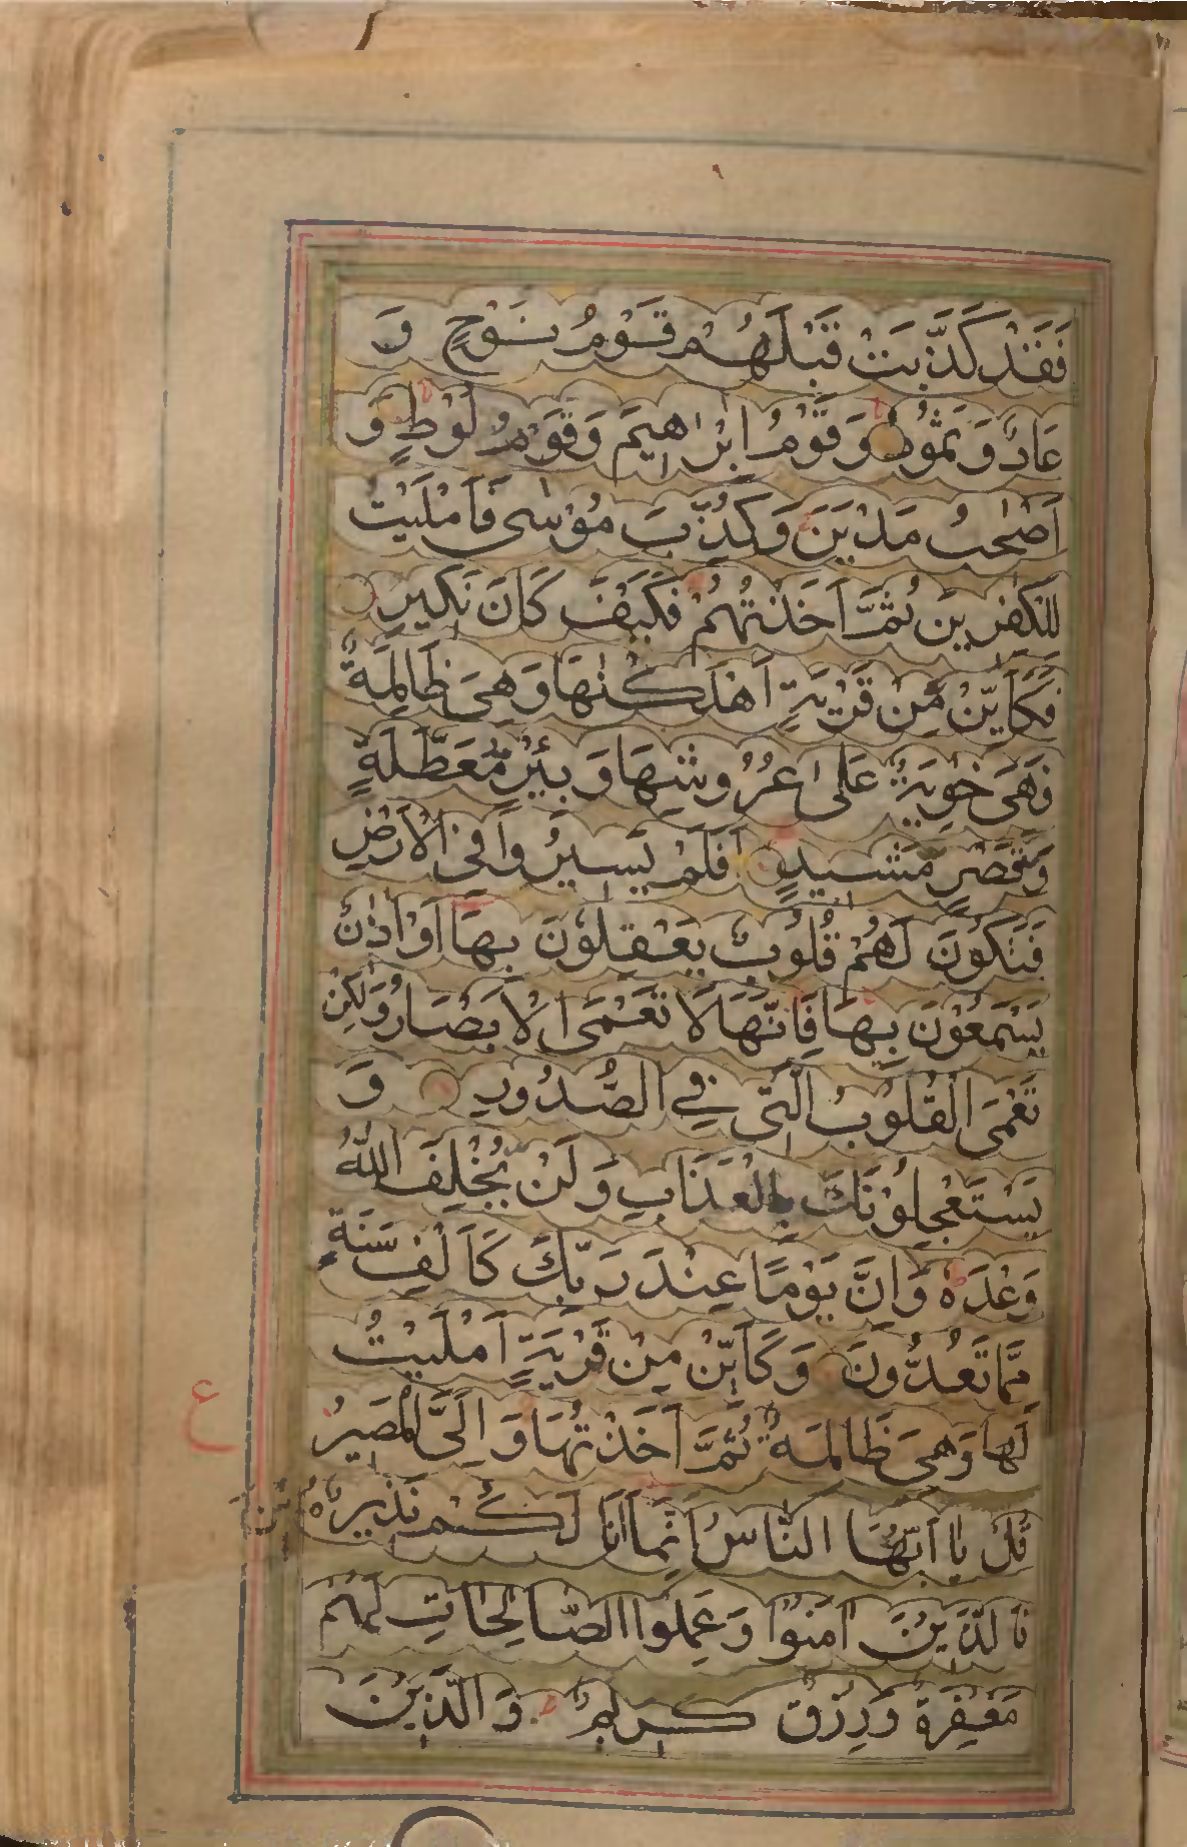 فَقَدْ كَذَّبَتْ قَبْلَهُمْ قَوْمُ نُوْحٍ وَ
عَادٌ وَ ثَمُوْدُ وَ قَوْمُ اِبْرٰهِيْمَ وَقَوْمُ لُوْطٍ وَّ
اَصْحٰبُ مَدْيَنَ وَكُذِّبَ مُوْسٰى فَاَمْلَيْتُ
لِلْكٰفِرِيْنَ ثُمَّ اَخَذْتُهُمْ فَكَيْفَ كَانَ نَكِيْرِ
فَكَاَيِّنْ مِّنْ قَرْيَةٍ اَهْلَكْنٰهَا وَهِىَ ظَالِمَةٌ
فَهِىَ خَاوِيَةٌ عَلٰى عُرُوْشِهَا وَ بِئْرٍ مُّعَطَّلَةٍ
وَّقَصْرٍ مَّشِيْدٍ اَفَلَمْ يَسِيْرُوْا فِى الْاَرْضِ
فَتَكُوْنَ لَهُمْ قُلُوْبٌ يَعْقِلُوْنَ بِهَا اَوْ اٰذَانٌ
يَسْمَعُوْنَ بِهَا فَاِنَّهَا لَا تَعْمَى الْاَبْصَارُ وَلٰكِنْ
تَعْمَى الْقُلُوْبُ الَّتِى فِي الصُّدُوْرِ وَ
يَسْتَعْجِلُوْنَكَ بِالْعَذَابِ وَ لَنْ يُّخْلِفَ اللّٰهُ
وَعْدَهٗ وَ اِنَّ يَوْمًا عِنْدَ رَبِّكَ كَاَلْفِ سَنَةٍ
مِّمَّا تَعُدُّوْنَ وَ كَاَيِّنْ مِنْ قَرْيَةٍ اَمْلَيْتُ
لَهَا وَهِىَ ظَالِمَةٌ ثُمَّ اَخَذْتُهَا وَ اِلَىَّ الْمَصِيْرُ
ع
قُلْ يَا اَيُّهَا النَّاسُ اِنَّمَا اَنَا لَكُمْ نَذِيْرٌ
فَالَّذِيْنَ اٰمَنُوْا وَعَمِلُوا الصَّالِحَاتِ لَهُمْ
مَغْفِرَةٌ وَ رِزْقٌ كَرِيْمٌ وَ الَّذِيْنَ